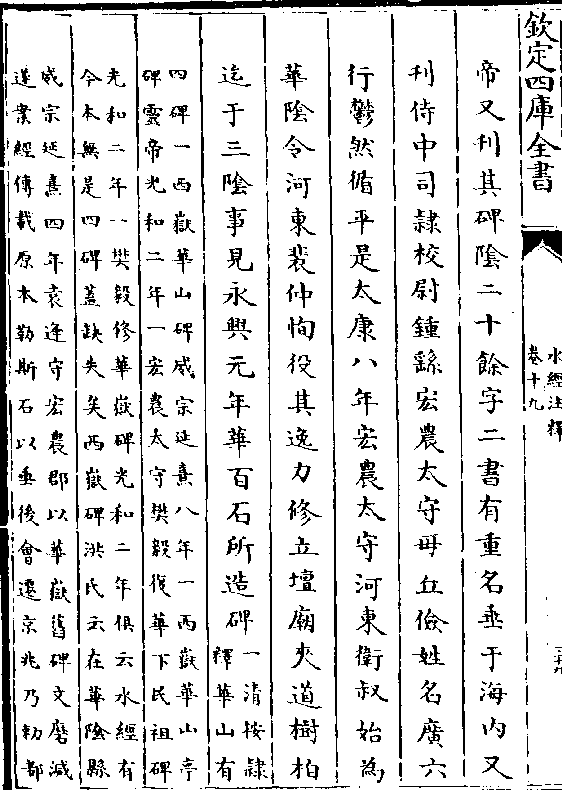 欽定四庫全書
水經注釋
卷十九
帝又刋其碑陰二十餘字二書有重名垂于海内又
刋侍中司隷校尉鍾繇宏農太守毋丘儉姓名廣六
行鬱然循平是太康八年宏農太守河東衛叔始為
華陰令河東裴仲恂役其逸力修立壇廟夾道樹柏
迄于三陰事見永興元年華百石所造碑
一清按隷
釋華山有
四碑一西嶽華山碑威宗延熹八年一西嶽華山亭
碑靈帝光和二年一宏農太守樊毅復華下民祖碑
光和二年一樊毅修華嶽碑光和二年俱云水經有
今本無是四碑蓋缺失矣西嶽碑洪氏云在華陰縣
威宗延熹四年袁逢守宏農郡以華嶽舊碑文磨滅
遂案經傳載原本勒斯石以垂後會遷京兆乃勑都